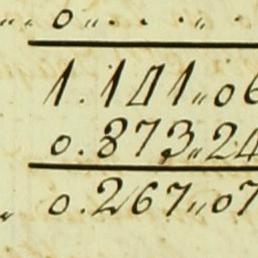 „ . o „ . . . . „ .
1.141„06
0.873„24
„ 0.267„07